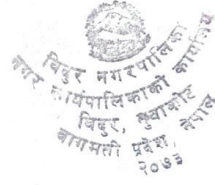 विदुर नगरपालिका
नगर कार्यपालिकाको कार्यालय
विदुर, नुवाकोट
बागमती प्रदेश, नेपाल
२०७३